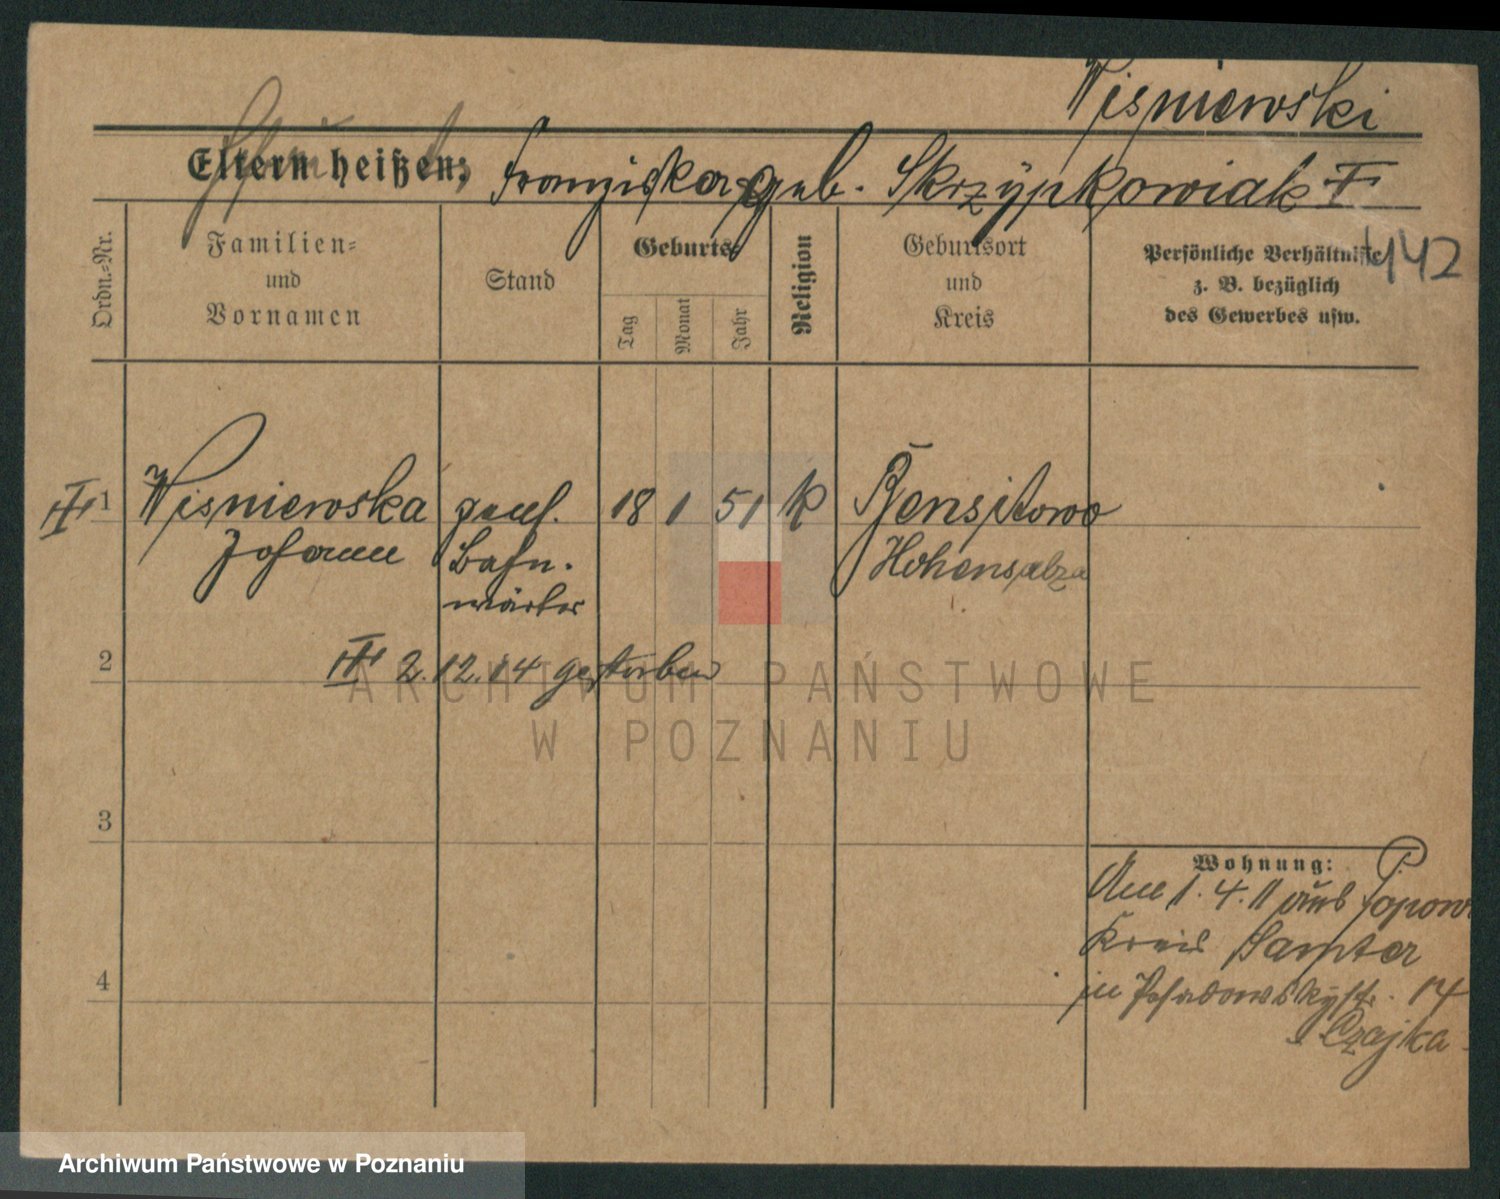 Wisniewski
Eltern heißen: Franziska geb. Skrzypkowiak
442
Ordn.-Nr.
Familien-
und
Vornamen
Stand
Geburts-
Tag
Monat
Jahr
Religion
Geburtsort
und
Kreis
Persönliche Verhältnisse
z. B. bezüglich
des Gewerbes usw.
1 Wisniewska 18 1 51 k
Johann Bahn-
wärter
Hohensalza
2 2.12.14 gestorben
3
4
Wohnung:
Am 1.4.11 aus
Kreis Samter
in Posadowskystr. 14
Czajka
ARCHIWUM PAŃSTWOWE
W POZNANIU
Archiwum Państwowe w Poznaniu